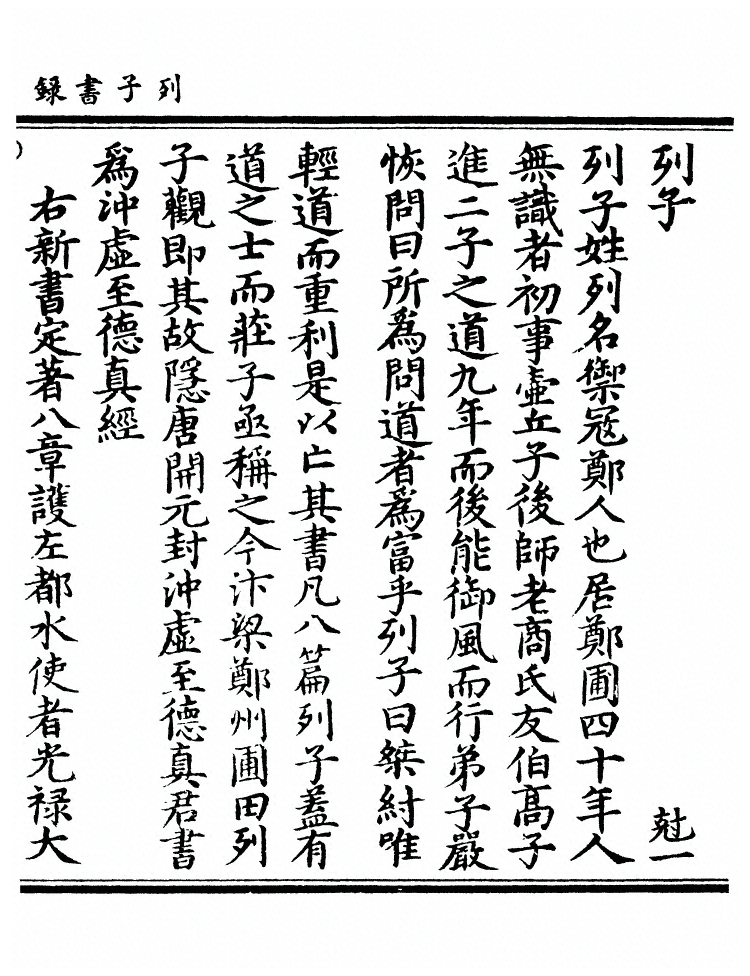 列子書録
列子 尅一
列子姓列名禦寇鄭人也居鄭圃四十年人
無識者初事壷丘子後師老商氏友伯髙子
進二子之道九年而後能御風而行弟子嚴
恢問曰所為問道者為富乎列子曰桀紂唯
輕道而重利是以亡其書凡八篇列子蓋有
道之士而莊子亟稱之今汴梁鄭州圃田列
子觀即其故隱唐開元封沖虛至德真君書
為沖虛至德真經
右新書定著八章護左都水使者光禄大